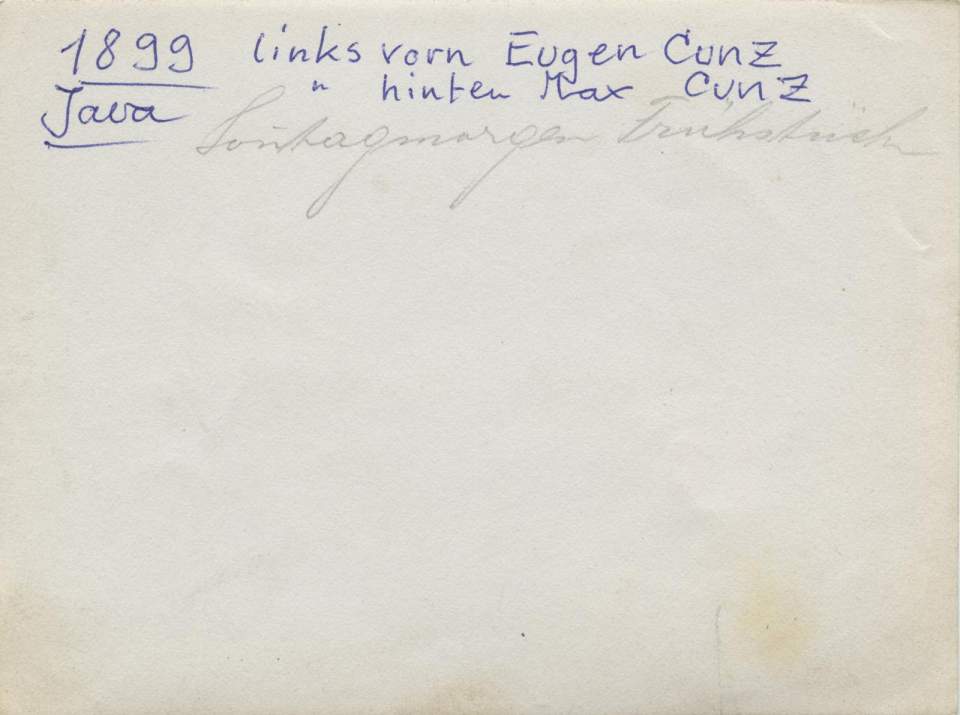 1899 links vorn Eugen Cunz
Java " hinten Max Cunz
Sontagmorgen Frühstück